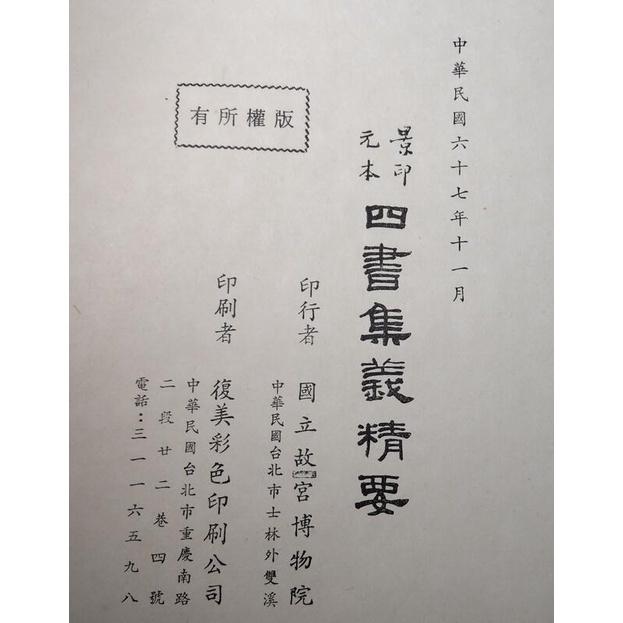 中華民國六十七年十一月
景印
元本
四書集義精要
印行者
國立故宮博物院
中華民國台北市士林外雙溪
印刷者
復美彩色印刷公司
中華民國台北市重慶南路
二段廿二巷四號
電話：三一一六五九八
版權所有